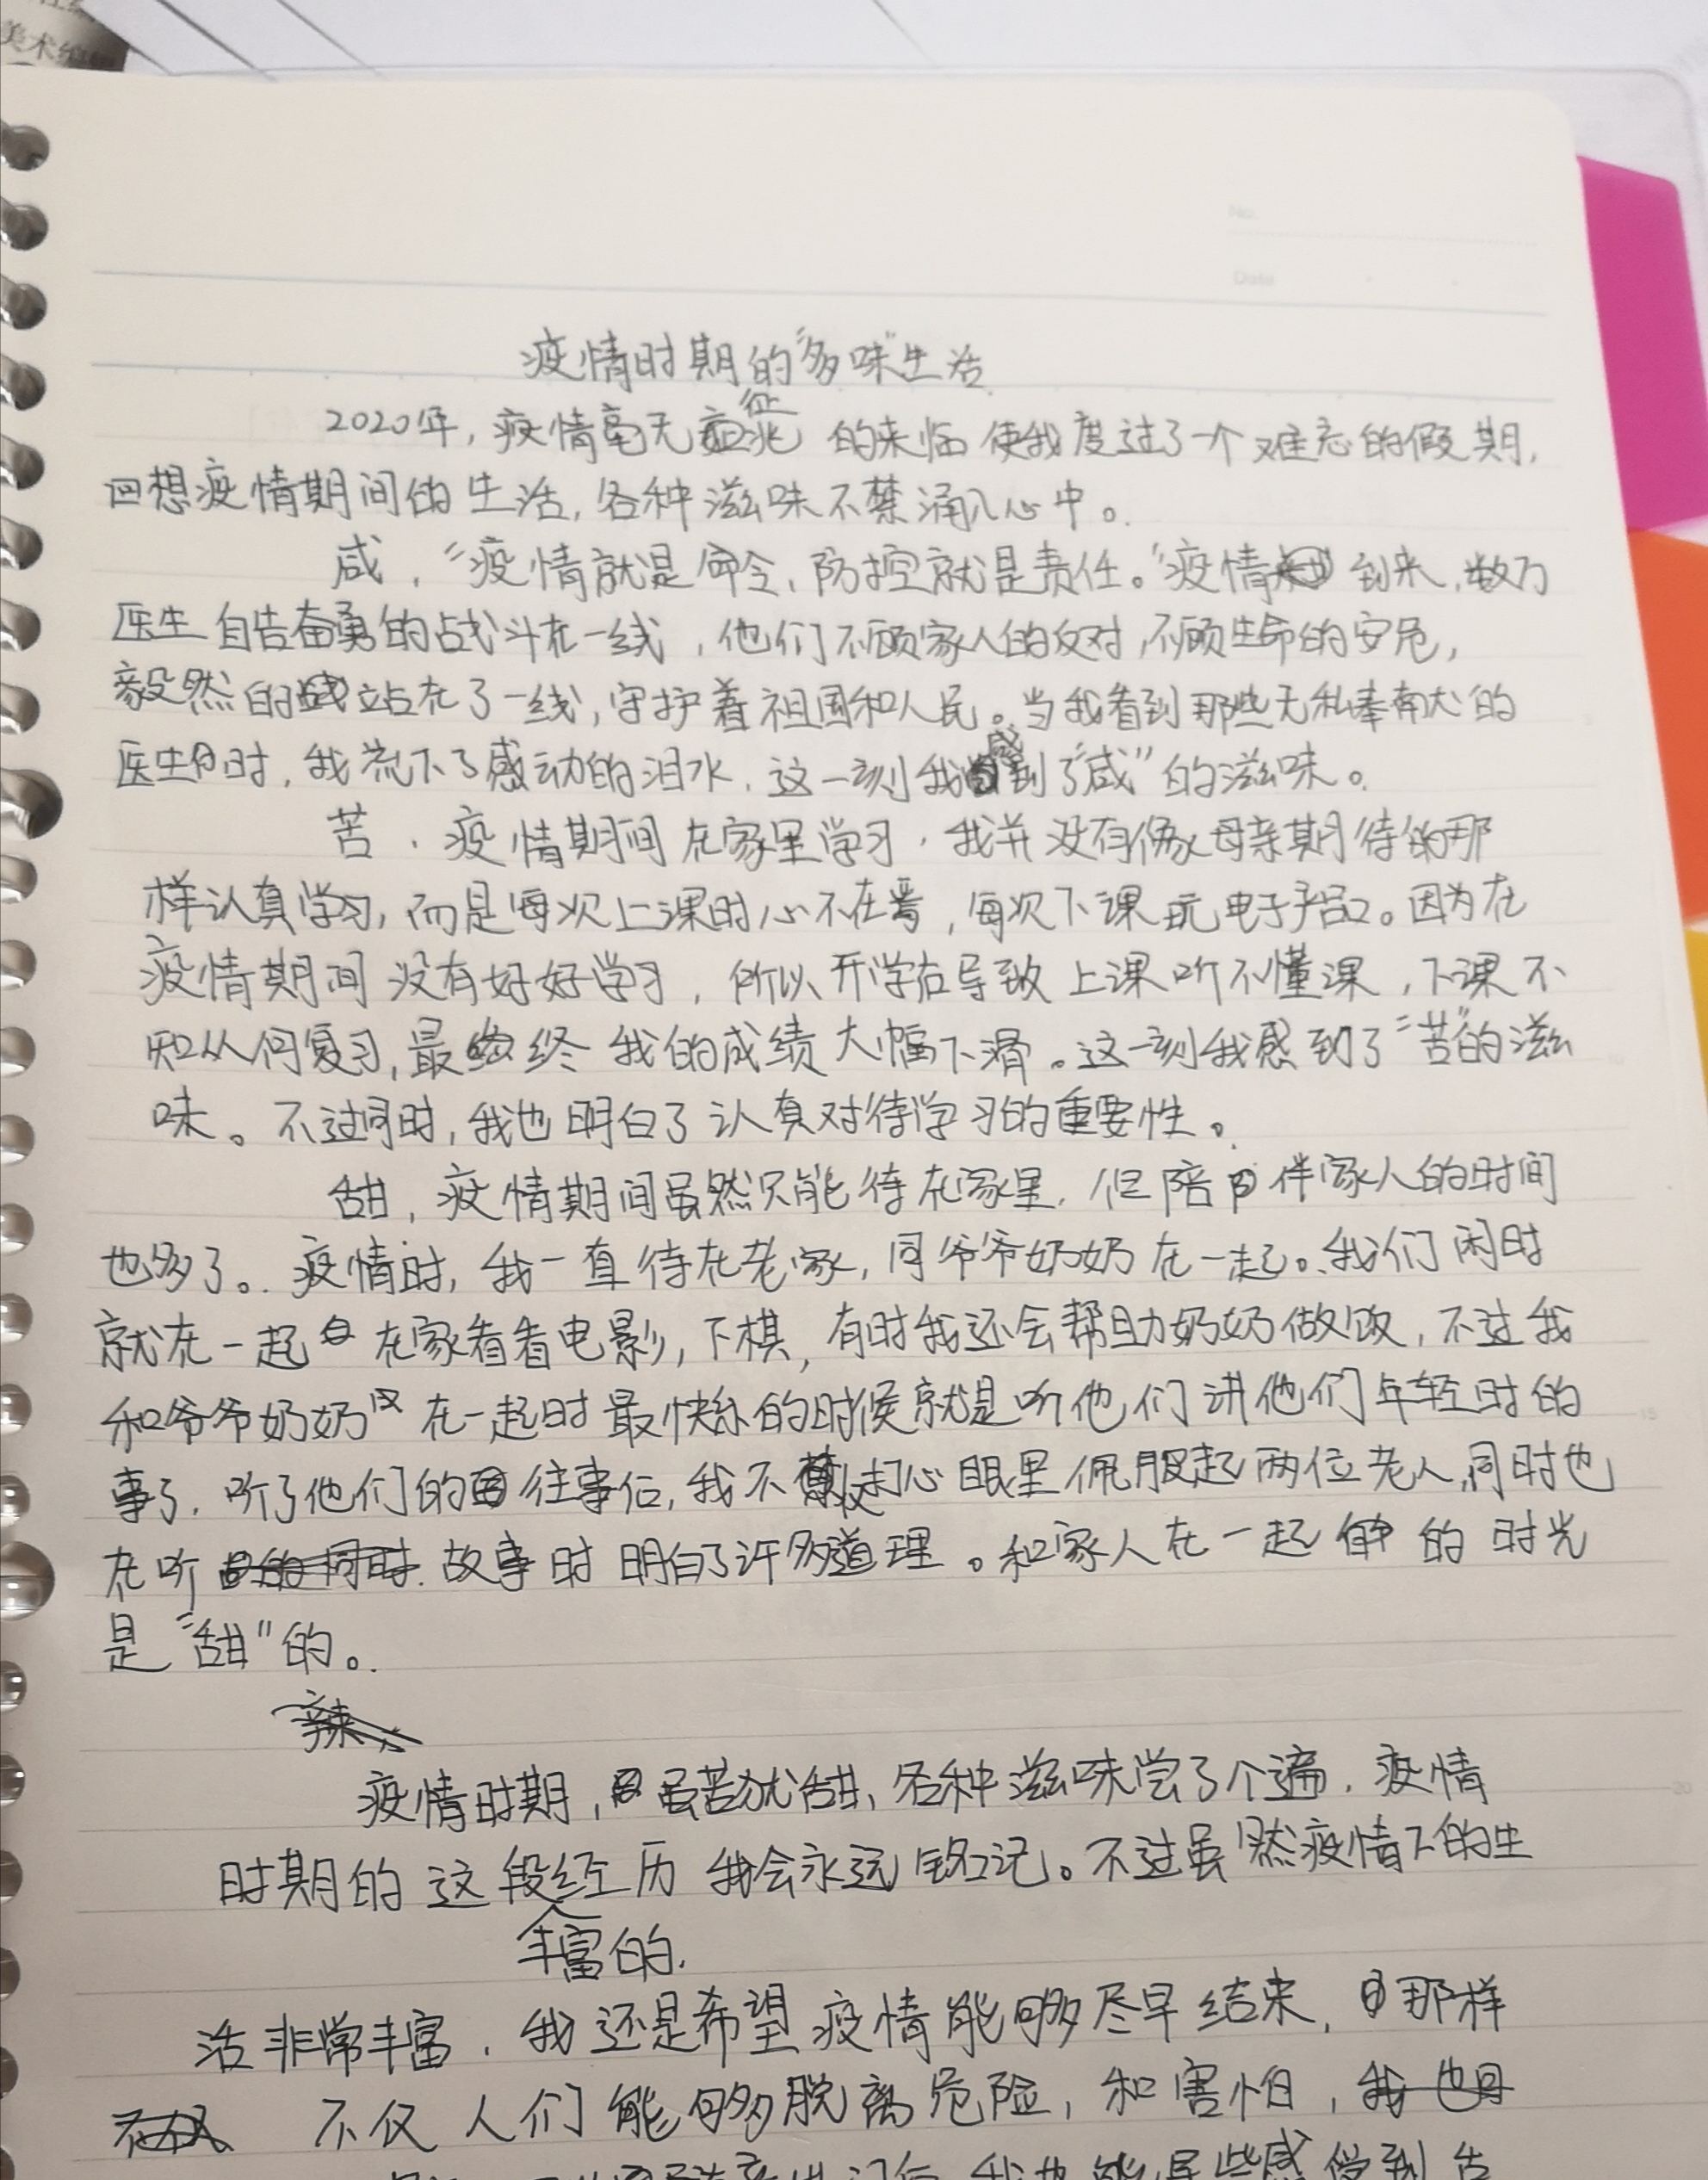 美术编
No.
Date
疫情时期的“多味”生活
2020年，疫情毫无征兆的来临使我度过了一个难忘的假期，
回想疫情期间的生活，各种滋味不禁涌入心中。
咸，“疫情就是命令，防控就是责任。”疫情到来，数万
医生自告奋勇的战斗在一线，他们不顾家人的反对，不顾生命的安危，
毅然的站在了一线，守护着祖国和人民。当我看到那些无私奉献的
医生们时，我流下了感动的泪水，这一刻我感到了“咸”的滋味。
苦，疫情期间在家里学习，我并没有像母亲期待的那
样认真学习，而是每次上课时心不在焉，每次下课玩电子产品。因为在
疫情期间没有好好学习，所以开学后导致上课听不懂课，下课不
知从何复习，最终我的成绩大幅下滑。这一刻我感到了“苦”的滋
味。不过同时，我也明白了认真对待学习的重要性。
甜，疫情期间虽然只能待在家里，但陪伴家人的时间
也多了。疫情时，我一直待在老家，同爷爷奶奶在一起。我们闲时
就在一起在家看看电影，下棋，有时我还会帮助奶奶做饭，不过我
和爷爷奶奶在一起时最快乐的时候就是听他们讲他们年轻时的
事了，听了他们的往事后，我不打心眼里佩服起两位老人，同时也
在听故事时明白了许多道理。和家人在一起的时光
是“甜”的。
辣
疫情时期，虽苦犹甜，各种滋味尝了个遍，疫情
时期的这段经历我会永远铭记。不过虽然疫情下的生
丰富的
活非常丰富，我还是希望疫情能够尽早结束，那样
不仅人们能够脱离危险，和害怕，我也
我也能
感受到